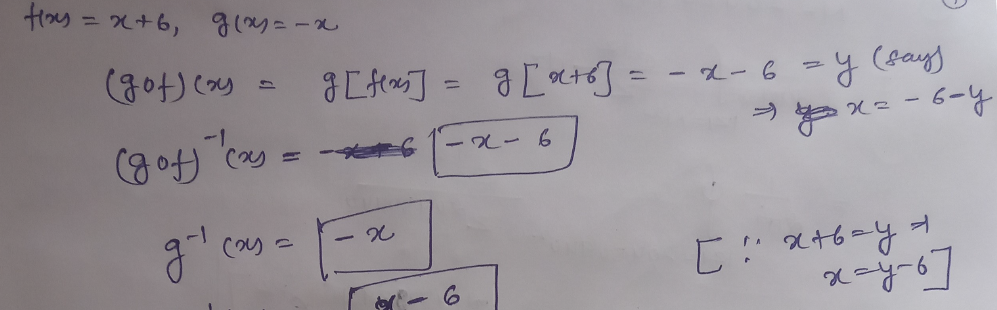 f(x) = x+6, g(x) = -x
(gof)(x) = g[f(x)] = g[x+6] = -x-6 = y (say)
⇒ x = -6-y
(gof)⁻¹(x) = -x-6
g⁻¹(x) = -x
[∵ x+6=y ⇒
x=y-6]
x-6